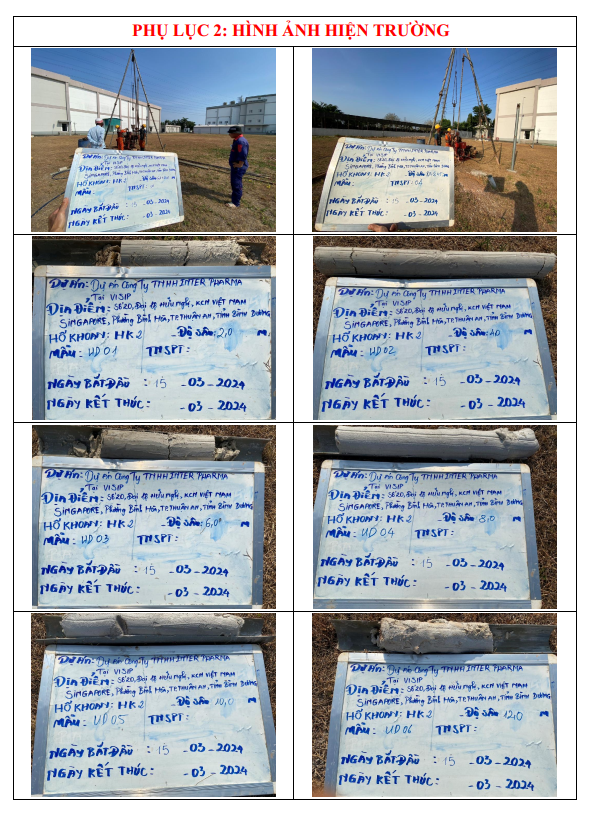 PHỤ LỤC 2: HÌNH ẢNH HIỆN TRƯỜNG
DỰ ÁN: Dự án Công Ty TNHH INTER PHARMA
Tại VISIP
ĐỊA ĐIỂM: Số 20, Đại lộ Hữu Nghị, KCN VIỆT NAM
SINGAPORE, Phường Bình Hoà, TP. THUẬN AN, Tỉnh BÌNH DƯƠNG
HỐ KHOAN: HK2
MẪU:
TNSPT:
NGÀY BẮT ĐẦU : 15 - 03 - 2024
NGÀY KẾT THÚC : - 03 - 2024
DỰ ÁN: Dự án Công Ty TNHH INTER PHARMA
Tại VISIP
ĐỊA ĐIỂM: Số 20, Đại lộ Hữu Nghị, KCN VIỆT NAM
SINGAPORE, Phường Bình Hoà, TP. THUẬN AN, Tỉnh BÌNH DƯƠNG
HỐ KHOAN: HK2
MẪU: TNSPT: 04
NGÀY BẮT ĐẦU : 15 - 03 - 2024
NGÀY KẾT THÚC : - 03 - 2024
DỰ ÁN: Dự án Công Ty TNHH INTER PHARMA
Tại VISIP
ĐỊA ĐIỂM: Số 20, Đại lộ Hữu Nghị, KCN VIỆT NAM
SINGAPORE, Phường Bình Hoà, TP. THUẬN AN, Tỉnh BÌNH DƯƠNG
HỐ KHOAN: HK2 - Độ sâu: 2,0 m
MẪU: UD01 TNSPT:
NGÀY BẮT ĐẦU : 15 - 03 - 2024
NGÀY KẾT THÚC : - 03 - 2024
DỰ ÁN: Dự án Công Ty TNHH INTER PHARMA
Tại VISIP
ĐỊA ĐIỂM: Số 20, Đại lộ Hữu Nghị, KCN VIỆT NAM
SINGAPORE, Phường Bình Hoà, TP. THUẬN AN, Tỉnh BÌNH DƯƠNG
HỐ KHOAN: HK2 - Độ sâu: 4,0 m
MẪU: UD02 TNSPT:
NGÀY BẮT ĐẦU : 15 - 03 - 2024
NGÀY KẾT THÚC : - 03 - 2024
DỰ ÁN: Dự án Công Ty TNHH INTER PHARMA
Tại VISIP
ĐỊA ĐIỂM: Số 20, Đại lộ Hữu Nghị, KCN VIỆT NAM
SINGAPORE, Phường Bình Hoà, TP. THUẬN AN, Tỉnh BÌNH DƯƠNG
HỐ KHOAN: HK2 - Độ sâu: 6,0 m
MẪU: UD03 TNSPT:
NGÀY BẮT ĐẦU : 15 - 03 - 2024
NGÀY KẾT THÚC : - 03 - 2024
DỰ ÁN: Dự án Công Ty TNHH INTER PHARMA
Tại VISIP
ĐỊA ĐIỂM: Số 20, Đại lộ Hữu Nghị, KCN VIỆT NAM
SINGAPORE, Phường Bình Hoà, TP. THUẬN AN, Tỉnh BÌNH DƯƠNG
HỐ KHOAN: HK2 - Độ sâu: 8,0 m
MẪU: UD04 TNSPT:
NGÀY BẮT ĐẦU : 15 - 03 - 2024
NGÀY KẾT THÚC : - 03 - 2024
DỰ ÁN: Dự án Công Ty TNHH INTER PHARMA
Tại VISIP
ĐỊA ĐIỂM: Số 20, Đại lộ Hữu Nghị, KCN VIỆT NAM
SINGAPORE, Phường Bình Hoà, TP. THUẬN AN, Tỉnh BÌNH DƯƠNG
HỐ KHOAN: HK2 - Độ sâu: 10,0 m
MẪU: UD05 TNSPT:
NGÀY BẮT ĐẦU : 15 - 03 - 2024
NGÀY KẾT THÚC : - 03 - 2024
DỰ ÁN: Dự án Công Ty TNHH INTER PHARMA
Tại VISIP
ĐỊA ĐIỂM: Số 20, Đại lộ Hữu Nghị, KCN VIỆT NAM
SINGAPORE, Phường Bình Hoà, TP. THUẬN AN, Tỉnh BÌNH DƯƠNG
HỐ KHOAN: HK2 - Độ sâu: 12,0 m
MẪU: UD06 TNSPT:
NGÀY BẮT ĐẦU : 15 - 03 - 2024
NGÀY KẾT THÚC : - 03 - 2024